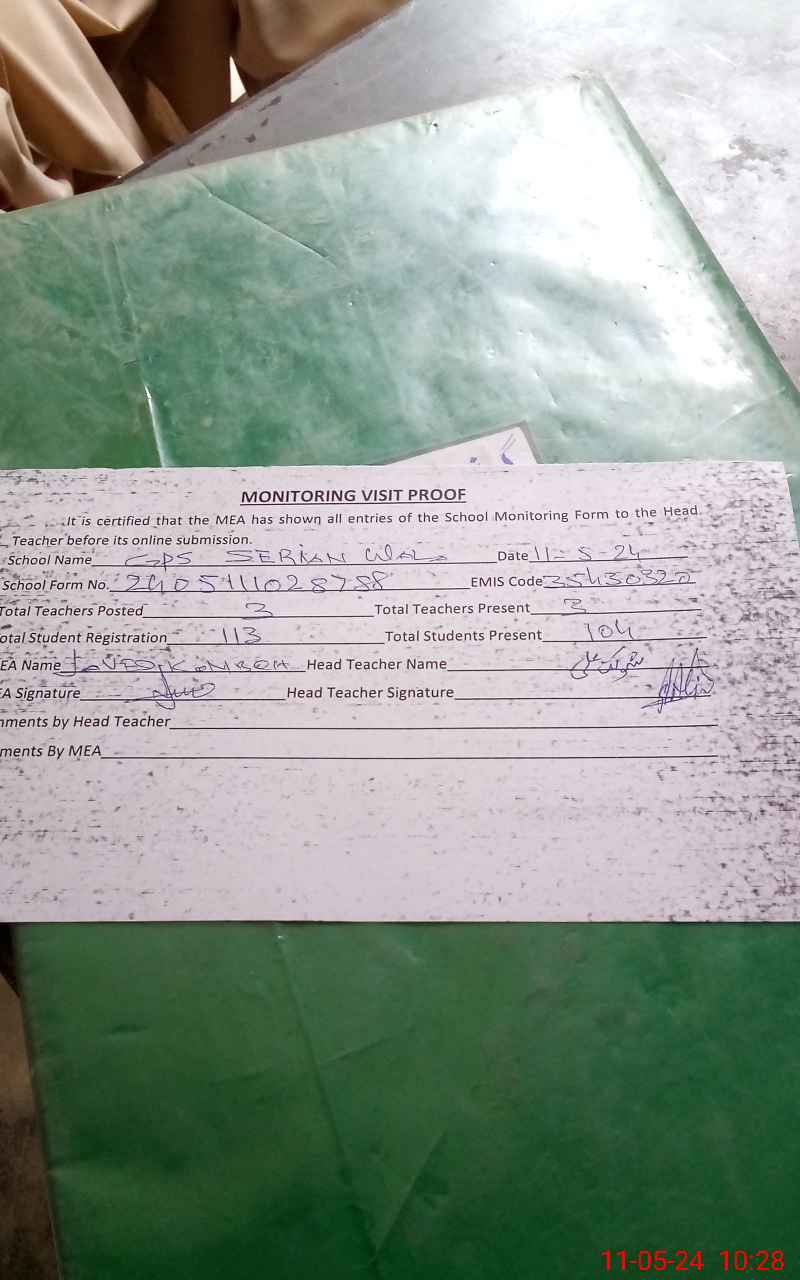 MONITORING VISIT PROOF
It is certified that the MEA has shown all entries of the School Monitoring Form to the Head
Teacher before its online submission.
School Name GPS SERIAN WALA Date 11-5-24
School Form No. 2405111028788 EMIS Code 35430320
Total Teachers Posted 3 Total Teachers Present 3
otal Student Registration 113 Total Students Present 104
EA Name JAVED KAMBOH Head Teacher Name شوکت علی
EA Signature Head Teacher Signature
nments by Head Teacher
ments By MEA
11-05-24 10:28